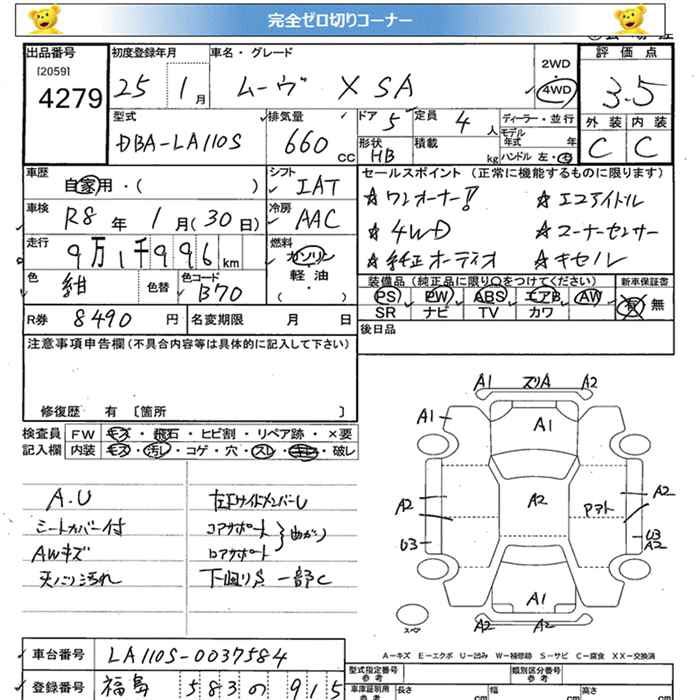 完全ゼロ切りコーナー
出品番号
[2059]
4279
初度登録年月
25 1 月
車名・グレード
ムーヴ X SA
2WD
4WD
評価点
3.5
外装 内装
C C
型式
DBA-LA110S
排気量
660 cc
ドア 5
定員 4 人
形状 HB
積載 kg
ディーラー・並行
モデル年式 年
ハンドル 左・右
車歴
自家用・( )
シフト
IAT
セールスポイント (正常に機能するものに限ります)
☆ワンオーナー!!
☆エコアイドル
☆4WD
☆コーナーセンサー
☆純正オーディオ
☆キセノン
車検
R8 年 1 月 (30 日)
冷房
AAC
走行
9万1千996 km
燃料
ガソリン
軽油
( ・ )
色
紺
色替
色コード
B70
装備品 (純正品に限り○をつけてください)
PS PW ABS エアB AW
SR ナビ TV カワ
新車保証書
有 無
R券 8490 円
名変期限 月 日
後日品
注意事項申告欄(不具合内容等は具体的に記入して下さい)
修復歴 有 [箇所 ]
検査員記入欄
FW キズ・飛石・ヒビ割・リペア跡・×要
内装 キズ・汚レ・コゲ・穴・スレ・キレ・破レ
A.U
シートカバー付
AWキズ
天ノリ汚れ
左右サイドメンバーU
コアサポート
ロアサポート
曲がり
下回りS 一部C
A1 ズリA A2
A1
A1
A2
A2
Pアト
A2
U3
U3
A2
A1
A2 A2
スペア
A-キズ E-エクボ U-凹み W-補修跡 S-サビ C-腐食 XX-交換済
車台番号 LA110S-0037584
登録番号 福島 583 の 915
型式指定番号
参考
類別区分番号
参考
車庫証明用
参考
長さ cm
幅 cm
高さ cm